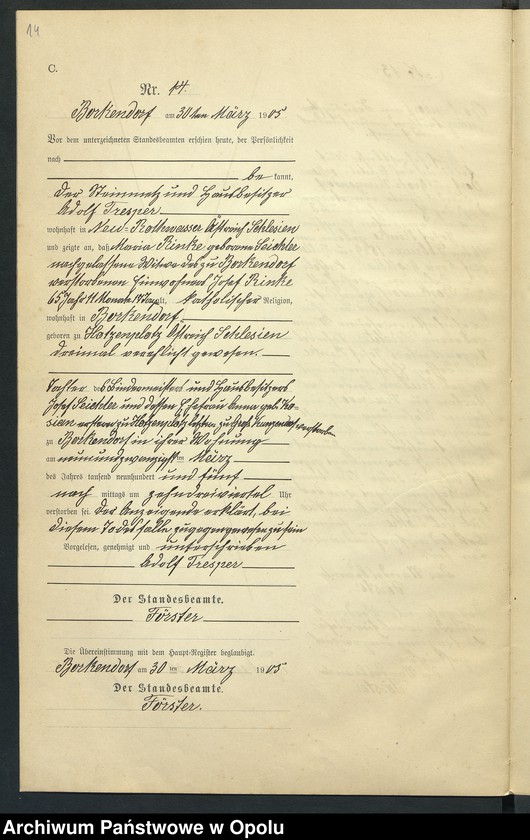 14
C.
Nr. 14.
Borkendorf am 30ten März 1905
Vor dem unterzeichneten Standesbeamten erschien heute, der Persönlichkeit
nach
be kannt,
der Steinmetz und Hausbesitzer
Adolf Tresper
wohnhaft in Neu-Rothwasser Östreich Schlesien
und zeigte an, daß Maria Rinke geborene Seichter
nachgelassene Witwe des zu Borkendorf
verstorbenen Einwohners Josef Rinke
65 Jahr 11 Monate 19 Tage alt, katholischer Religion,
wohnhaft in Borkendorf
geboren zu Hotzenplotz Östreich Schlesien
dreimal verehlicht gewesen.
Tochter des Bindermeisters und Hausbesitzers
Josef Seichter und dessen Ehefrau Anna geb.
ersterer zu Hotzenplotz letztere zu verstorben
zu Borkendorf in ihrer Wohnung
am neunundzwanzigsten März
des Jahres tausend neunhundert und fünf
nach mittags um zehndreiviertel Uhr
verstorben sei. Der Anzeigende erklärt, bei
diesem Todesfalle zugegen gewesen zu sein
Vorgelesen, genehmigt und unterschrieben
Adolf Tresper
Der Standesbeamte.
Förster
Die Übereinstimmung mit dem Haupt-Register beglaubigt.
Borkendorf am 30 ten März 1905
Der Standesbeamte.
Förster.
Archiwum Państwowe w Opolu